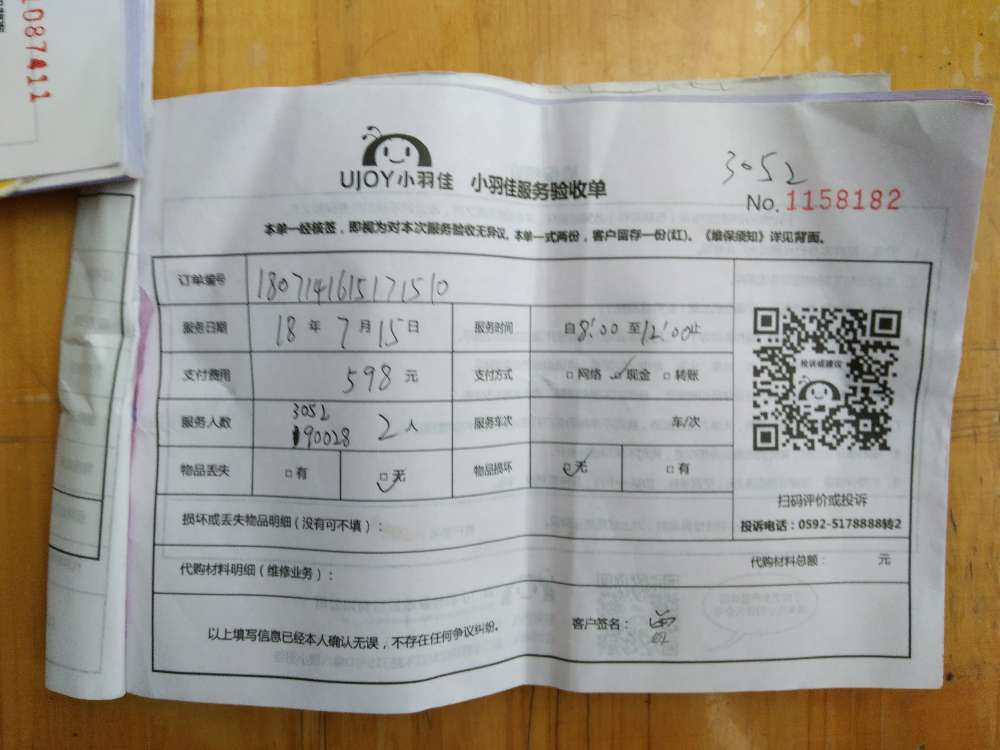 1087411
3052
UJOY小羽佳 小羽佳服务验收单
No. 1158182
本单一经核签，即视为对本次服务验收无异议。本单一式两份，客户留存一份(红)。《维保须知》详见背面。
订单编号 1807141615171510
服务日期 18年7月15日 服务时间 自8:00至12:00止
投诉或建议
支付费用 598元 支付方式 □网络 □现金 □转账
服务人数 3052 190028 2人 服务车次 车/次
物品丢失 □有 □无 物品损坏 □无 □有
扫码评价或投诉
损坏或丢失物品明细（没有可不填）：
投诉电话：0592-5178888转2
代购材料明细（维修业务）：
代购材料总额： 元
以上填写信息已经本人确认无误，不存在任何争议纠纷。
客户签名：